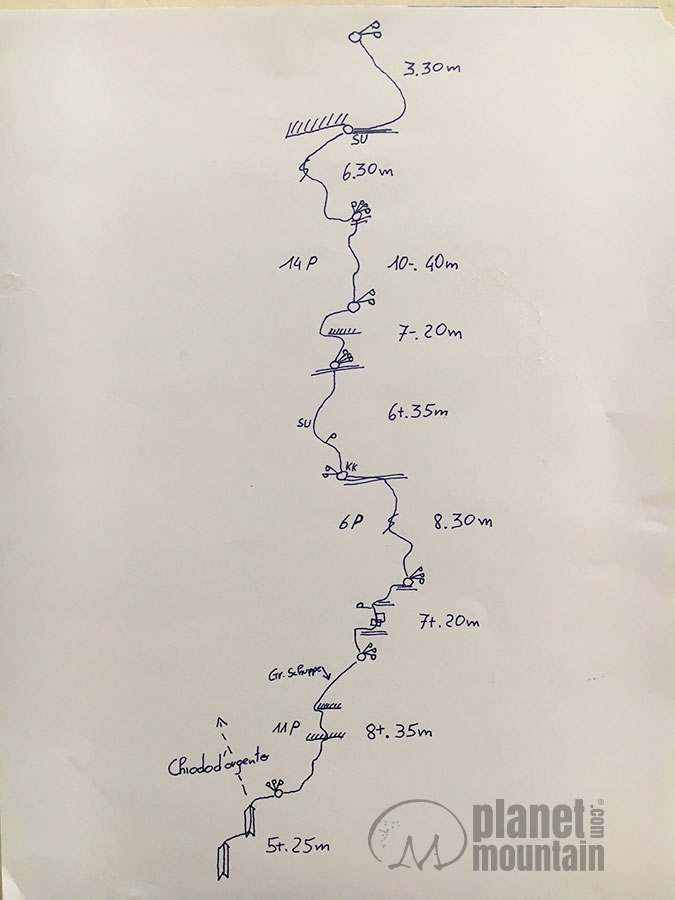 3.30m
SU
6.30m
14P 10-. 40m
7-. 20m
SU 6+. 35m
KK
6P 8.30m
7+. 20m
Gr. Schuppe
11P 8+. 35m
Chiodo d'argento
5+. 25m
planet
mountain
.com